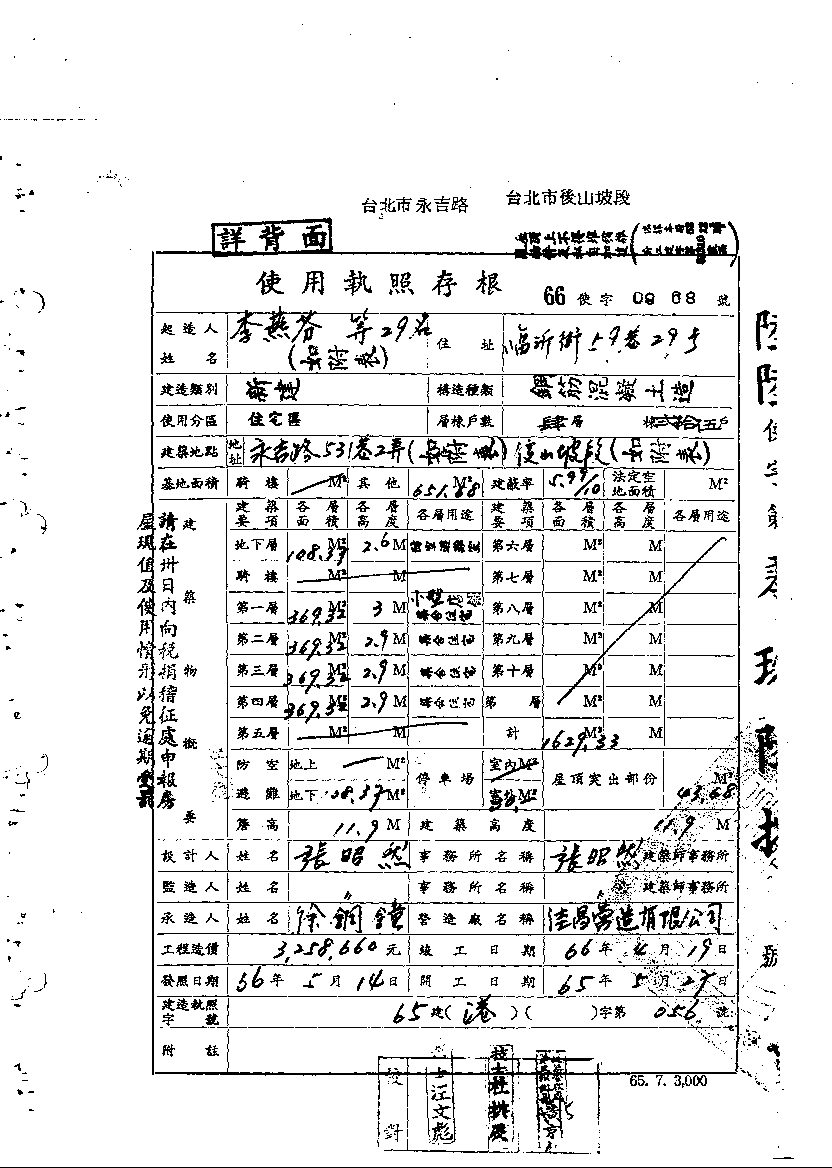 台北市永吉路 台北市後山坡段
詳背面
使用執照存根 66 使字 0968 號
起造人姓名 李燕芬 等29名 (如附表) 住址 臨沂街59巷29号
建造類別 新建 構造種類 鋼筋混凝土造
使用分區 住宅區 層棟戶數 肆層 棟貳拾伍戶
建築地點 地址 永吉路531巷2弄(如附表) 後山坡段(如附表)
基地面積 騎樓 M² 其他 651.68 M² 建蔽率 5.99/10 法定空地面積 M²
建築概要
建築要項 各層面積 各層高度 各層用途 建築要項 各層面積 各層高度 各層用途
地下層 108.37 M² 2.6 M 第六層 M² M
騎樓 M² M 第七層 M² M
第一層 369.32 M² 3 M 第八層 M² M
第二層 369.32 M² 2.9 M 集合住宅 第九層 M² M
第三層 369.32 M² 2.9 M 集合住宅 第十層 M² M
第四層 369.32 M² 2.9 M 集合住宅 第 層 M² M
第五層 M² M 計 1629.33 M² M
防空避難 地上 M² 停車場 室內 M² 屋頂突出部份 43.68 M²
地下 108.37 M² M²
簷高 11.9 M 建築高度 11.9 M
設計人 姓名 張昭然 事務所名稱 張昭然 建築師事務所
監造人 姓名 〃 事務所名稱 〃 建築師事務所
承造人 姓名 徐鋼鐘 營造廠名稱 佳昌營造有限公司
工程造價 3,258,660元 竣工日期 66年4月19日
發照日期 66年5月14日 開工日期 65年5月27日
建造執照字號 65建(港)( )字第 056 號
附註
請在卅日內向稅捐稽征處申報房
屋現值及使用情形以免逾期受罰
校對
江文彪
65. 7. 3,000